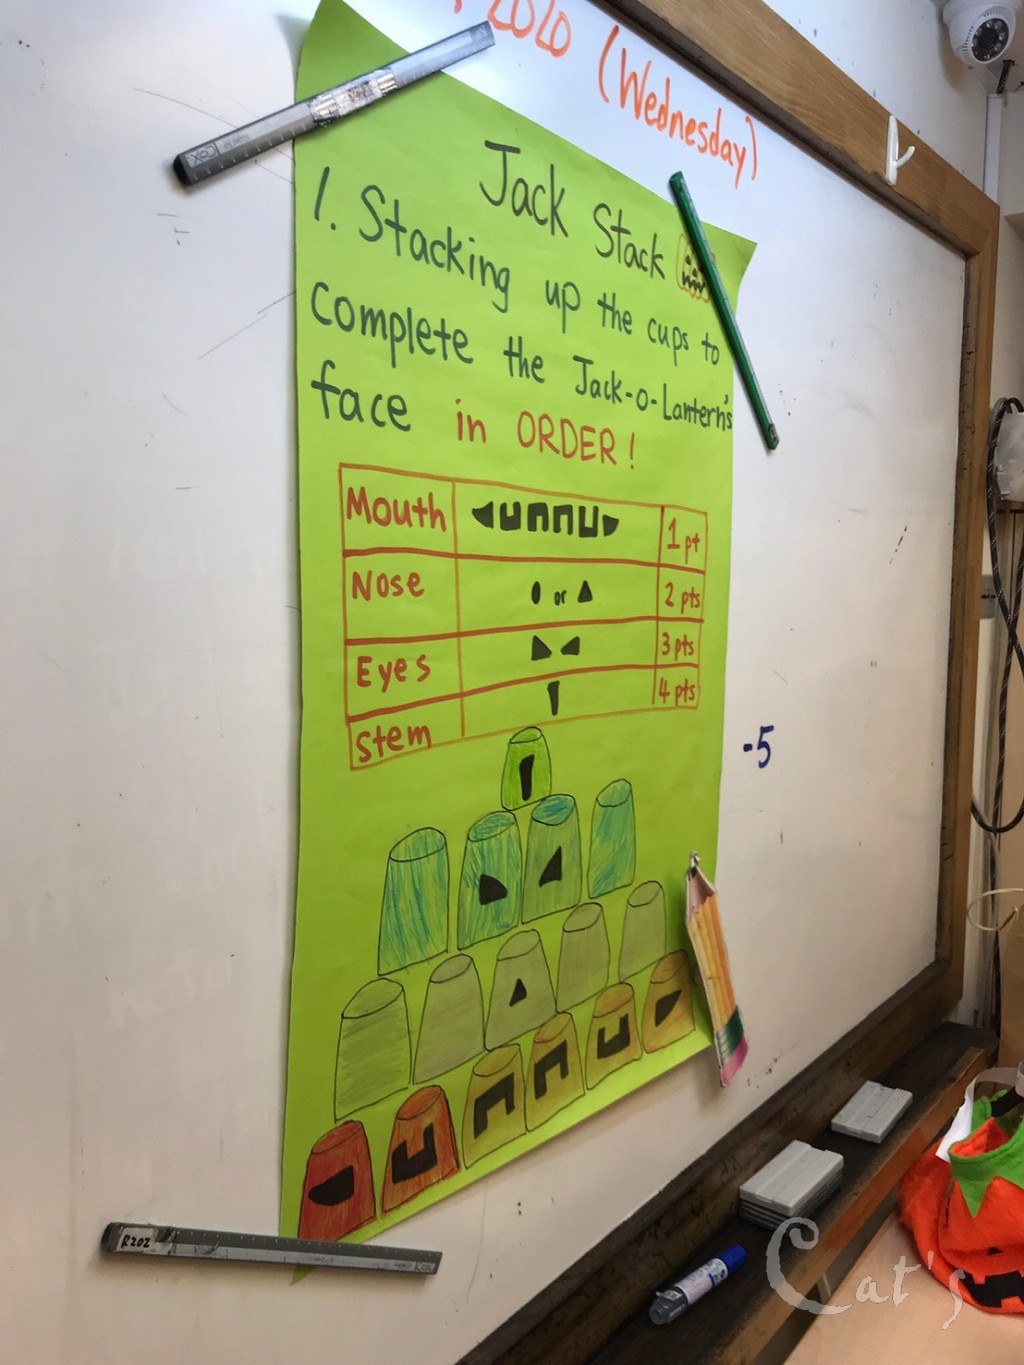 , 2020 (Wednesday)
Jack Stack
1. Stacking up the cups to
complete the Jack-o-Lantern's
face in ORDER!
Mouth 1 pt
Nose or 2 pts
Eyes 3 pts
Stem 4 pts
-5
R202
Cat's